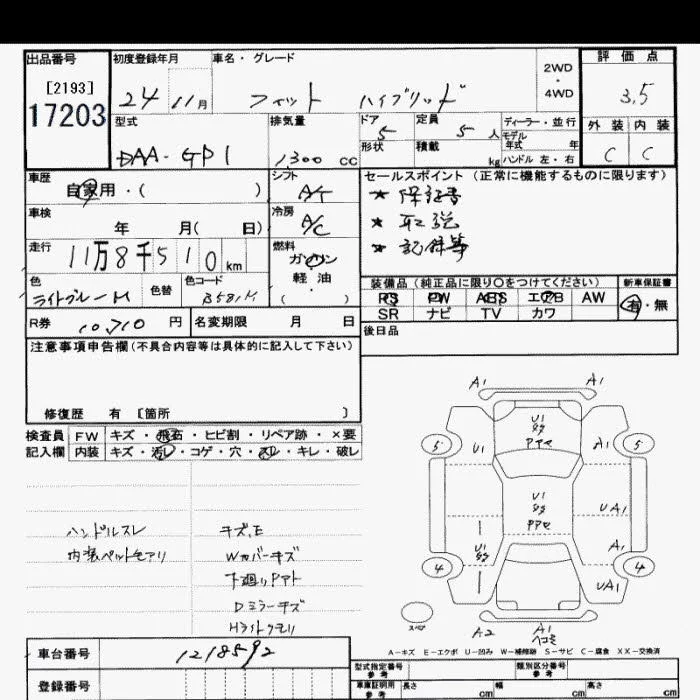 出品番号
[2193]
17203
初度登録年月
24 11月
車名・グレード
フィット ハイブリッド
2WD
・
4WD
評価点
3.5
外装 内装
C C
型式
DAA-GP1
排気量
1300 cc
ドア
5
定員
5 人
形状
積載
kg
ディーラー・並行
モデル
年式 年
ハンドル 左・右
車歴
自家用・( )
シフト
AT
セールスポイント(正常に機能するものに限ります)
★ 保証書
★ 取説
★ 記録簿
車検
年 月( 日)
冷房
A/C
走行
11万8千510km
燃料
ガソリン
軽・油
( ・ )
色
ライトブルーM
色替
色コード
B581M
装備品(純正品に限り○をつけてください)
新車保証書
PS PW ABS エアB AW
SR ナビ TV カワ
有・無
R券 10,710 円
名変期限 月 日
後日品
注意事項申告欄(不具合内容等は具体的に記入して下さい)
修復歴 有 [箇所 ]
検査員
記入欄
FW キズ・飛石・ヒビ割・リペア跡・×要
内装 キズ・汚レ・コゲ・穴・スレ・キレ・破レ
ハンドルスレ
内装ペットモアリ
キズ、E
Wカバーキズ
下廻りPアト
Dミラーキズ
Hライトクモリ
A1 A1
U1
タタ
5 U1 A1 5
U1
タタ
UA1
U1
タタ
A1
4 4
UA1
スペア
A2 A1
ヘコミ
A-キズ E-エクボ U-凹み W-補修跡 S-サビ C-腐食 XX-交換済
車台番号 1218592
登録番号
型式指定番号
参考
類別区分番号
参考
車庫証明用
参考
長さ cm
幅 cm
高さ cm